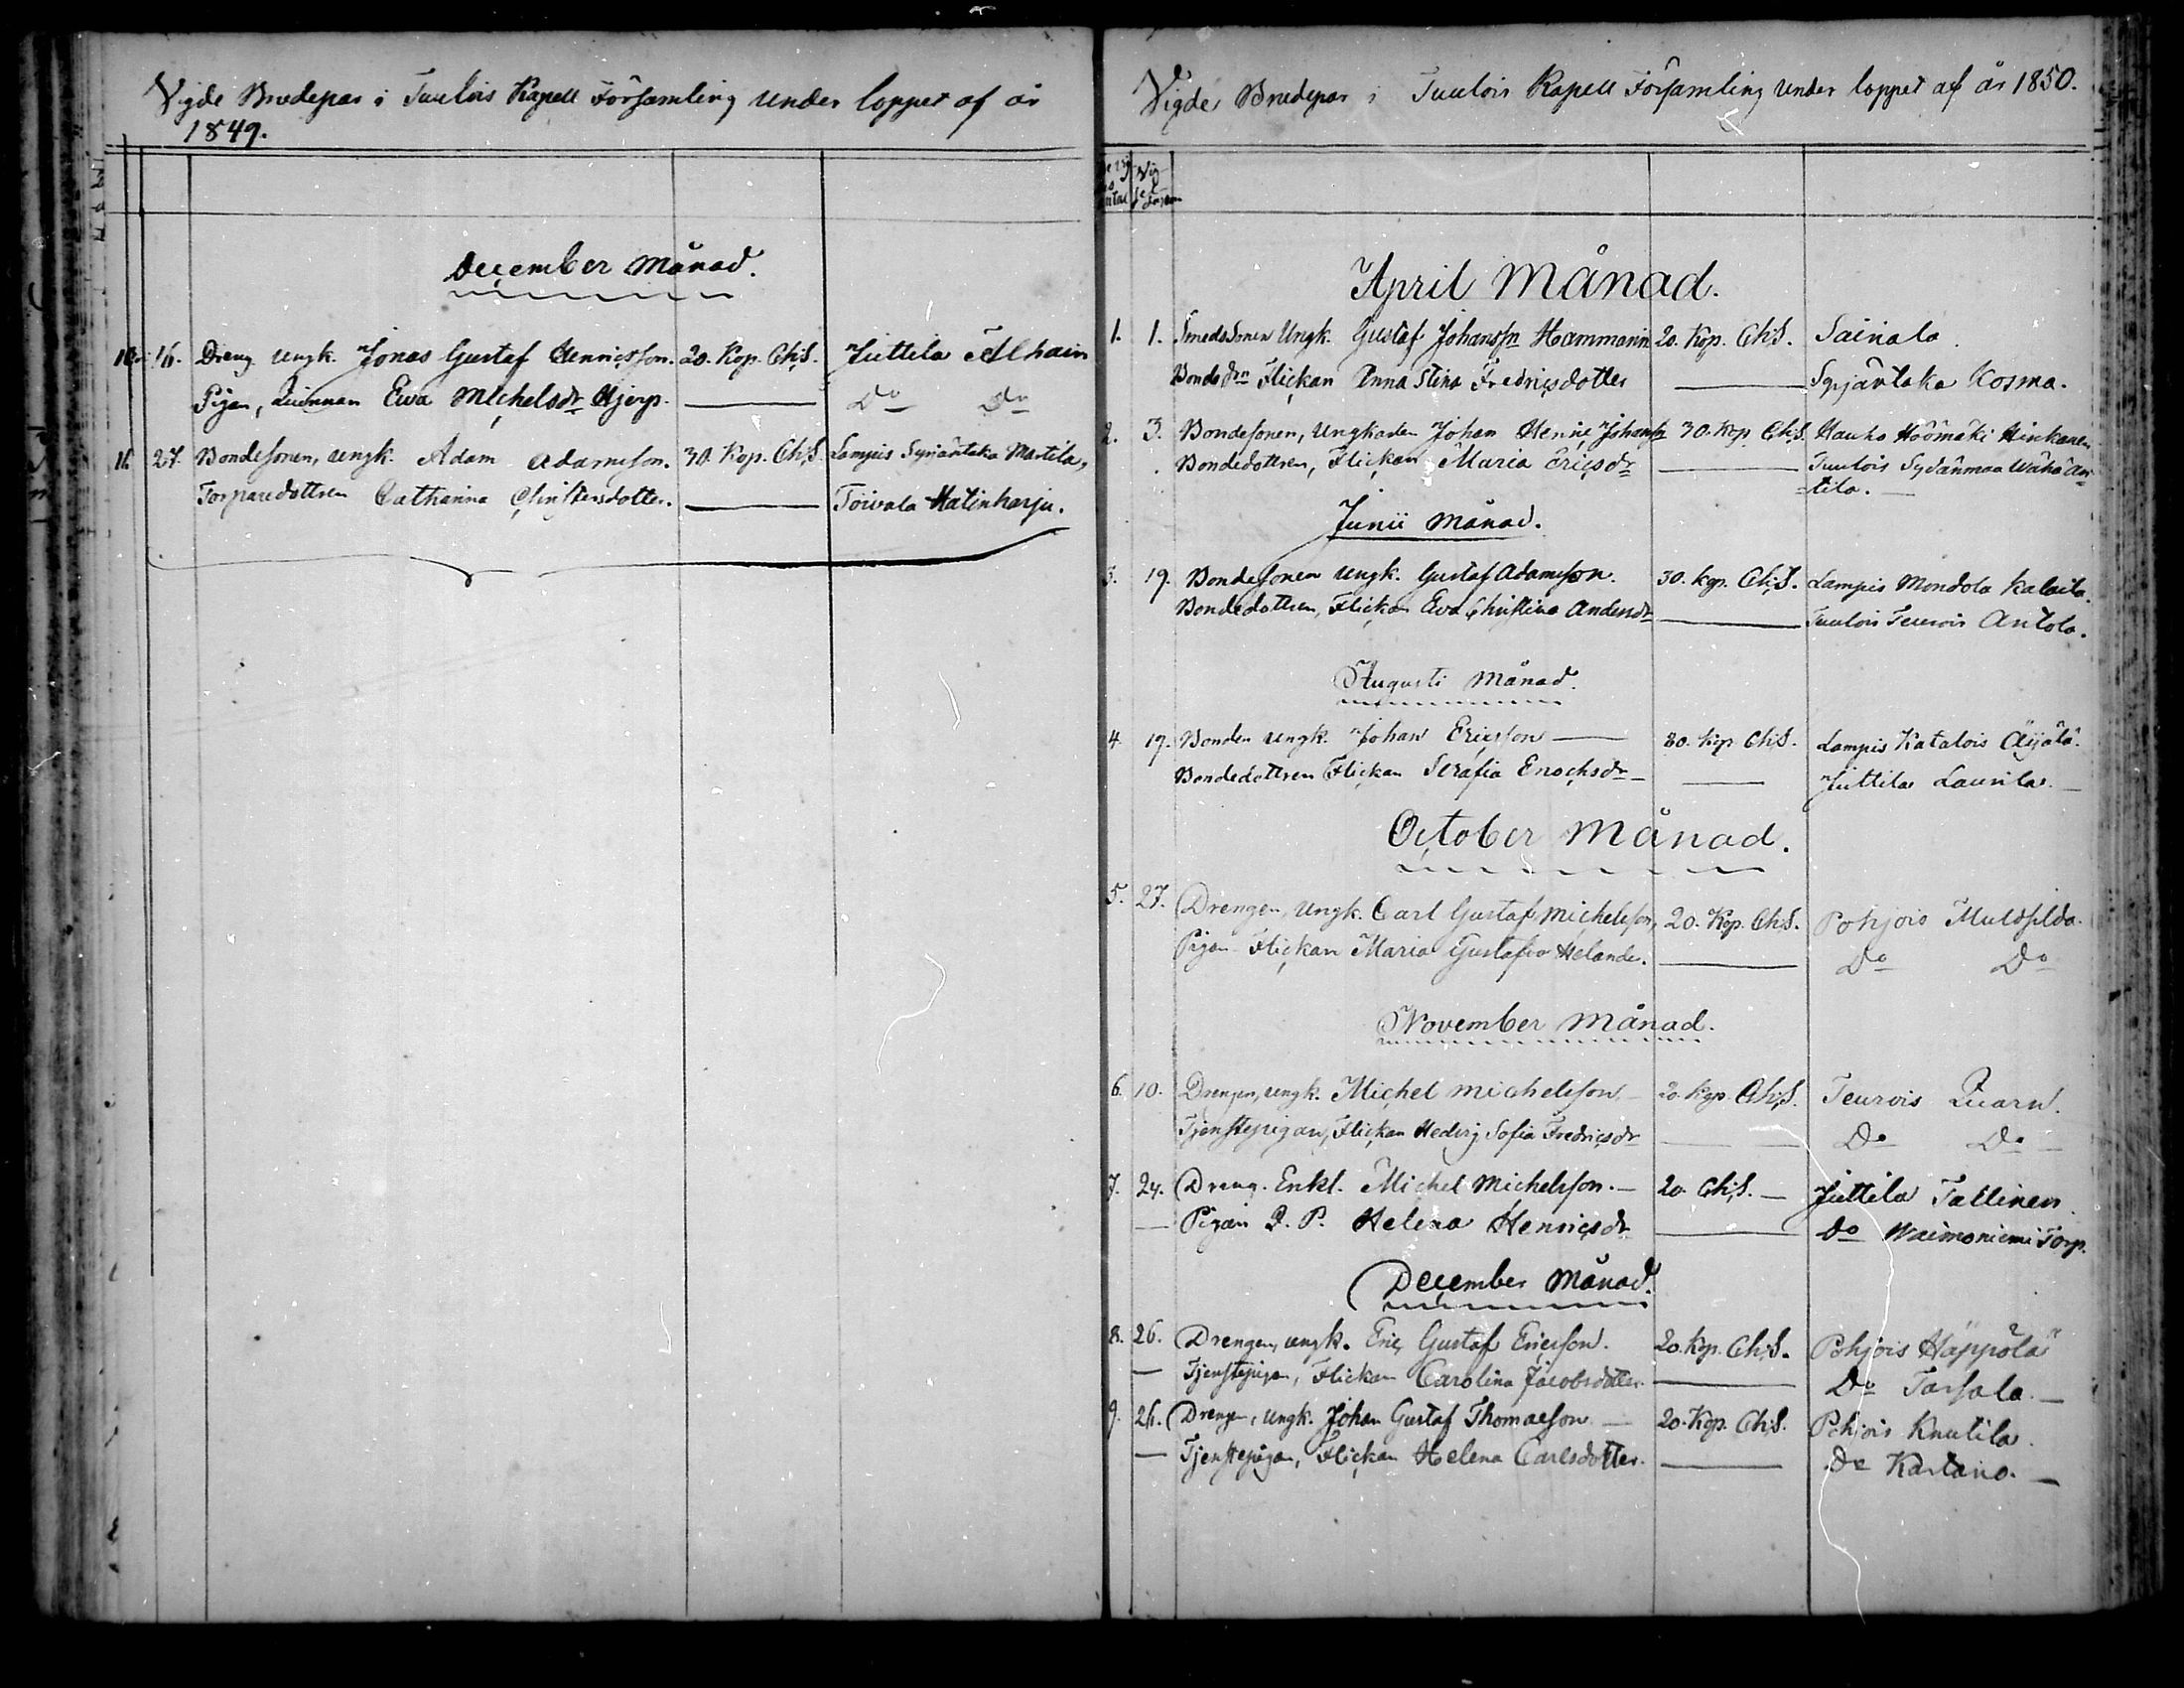 Vigde Brudepar i Tuulois Kapell Församling under loppet af år
1849.
December Månad.
16. Dreng Ungk. Jonas Gustaf Henricsson. 20. Kop. Ch:S. Juttila Alhain
Pigan, Quinnan Ewa Michelsdr Hjerp. Do Do
16 27. Bondesonen, ungk. Adam Adamsson. 30. Kop. Ch:S. Lampis Syrjäntaka Martila,
Torparedottren Catharina Christersdotter. Toivala Hatinharju.
Vigde Brudepar i Tuulois Kapell Församling under loppet af år 1850.
April Månad.
1. 1. Smedssonen Ungk. Gustaf Johanssn Hammarin 20. Kop. Ch:S. Sairiala.
Bonde drn Flickan Anna Stina Fredricsdotter Syrjäntaka Kosma.
2. 3. Bondesonen, Ungkarlen Johan Henric Johanss 30. Kop. Ch:S. Hauho Hinkanen
Bondedottren, Flickan Maria Ericsdr Tuulois Sydänmaa Wähä An=
=tila.
Junii Månad.
3. 19. Bondesonen Ungk. Gustaf Adamsson. 30. kop. Ch:S. Lampis Mondola Kalaila.
Bondedottren, Flickan Eva Christina Andersdr Tuulois Teurois Antola.
Augusti Månad.
4. 19. Bonden Ungk. Johan Ericsson 30. Kop. Ch:S. Lampis Katalois Äijälä.
Bondedottren Flickan Serafia Enochsdr Juttila Laurila.
October Månad.
5. 27. Drengen, Ungk. Carl Gustaf Michelsson, 20. Kop. Ch:S. Pohjois
Pigan Flickan Maria Gustafva Helander. Do Do
November Månad.
6. 10. Drengen, ungk. Michel Michelsson 20. Kop. Ch:S. Teurois Quarn.
Tjenstepigan, Flickan Hedvig Sofia Fredricsdr Do Do
7. 24. Dreng. Enkl. Michel Michelsson. 20. Ch:S. Juttila Tallinen.
Pigan Q. P. Helena Henricsdr Do Waimoniemi Torp.
December Månad.
8. 26. Drengen, ungk. Eric Gustaf Ericsson. 20. Kop. Ch:S. Pohjois Häppölä
Tjenstepigan, Flickan Carolina Jacobsdotter Do Tarsala.
9. 26. Drengen, Ungk. Johan Gustaf Thomasson 20. Kop. Ch:S. Pohjois Knutila.
Tjenstepigan, Flickan Helena Carlsdotter. Do Kartano.